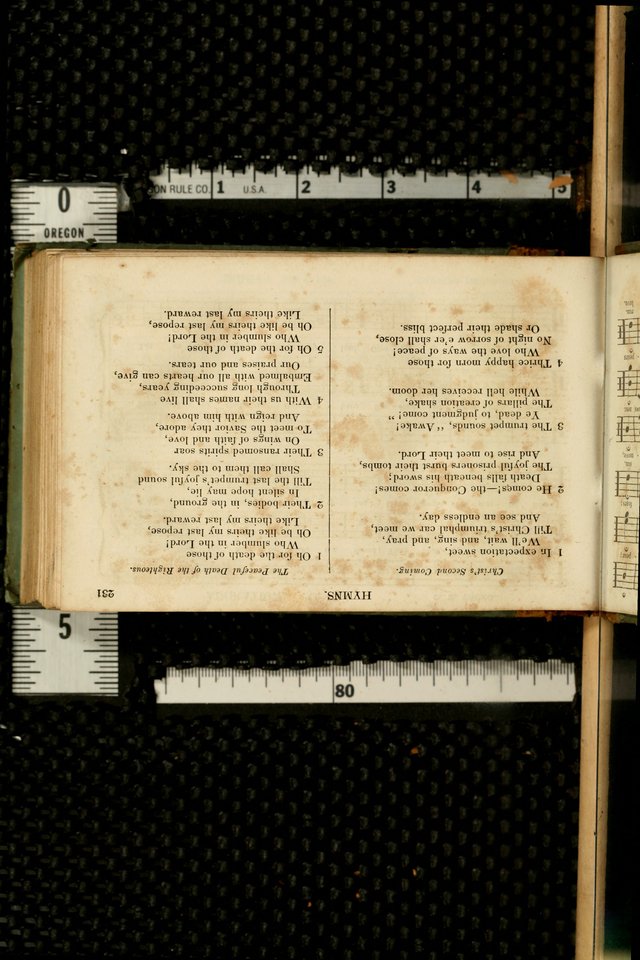 HYMNS.
231
Christ's Second Coming.
1 In expectation sweet,
We'll wait, and sing, and pray,
Till Christ's triumphal car we meet,
And see an endless day.
2 He comes!—the Conqueror comes!
Death falls beneath his sword;
The joyful prisoners burst their tombs,
And rise to meet their Lord.
3 The trumpet sounds, "Awake!
Ye dead, to judgment come!"
The pillars of creation shake,
While hell receives her doom.
4 Thrice happy morn for those
Who love the ways of peace!
No night of sorrow e'er shall close,
Or shade their perfect bliss.
The Peaceful Death of the Righteous.
1 Oh for the death of those
Who slumber in the Lord!
Oh be like theirs my last repose,
Like theirs my last reward.
2 Their bodies, in the ground,
In silent hope may lie,
Till the last trumpet's joyful sound
Shall call them to the sky.
3 Their ransomed spirits soar
On wings of faith and love,
To meet the Savior they adore,
And reign with him above.
4 With us their names shall live
Through long succeeding years,
Embalmed with all our hearts can give,
Our praises and our tears.
5 Oh for the death of those
Who slumber in the Lord!
Oh be like theirs my last repose,
Like theirs my last reward.
0
OREGON
ON RULE CO. 1 U.S.A. 2 3 4 5
5
80